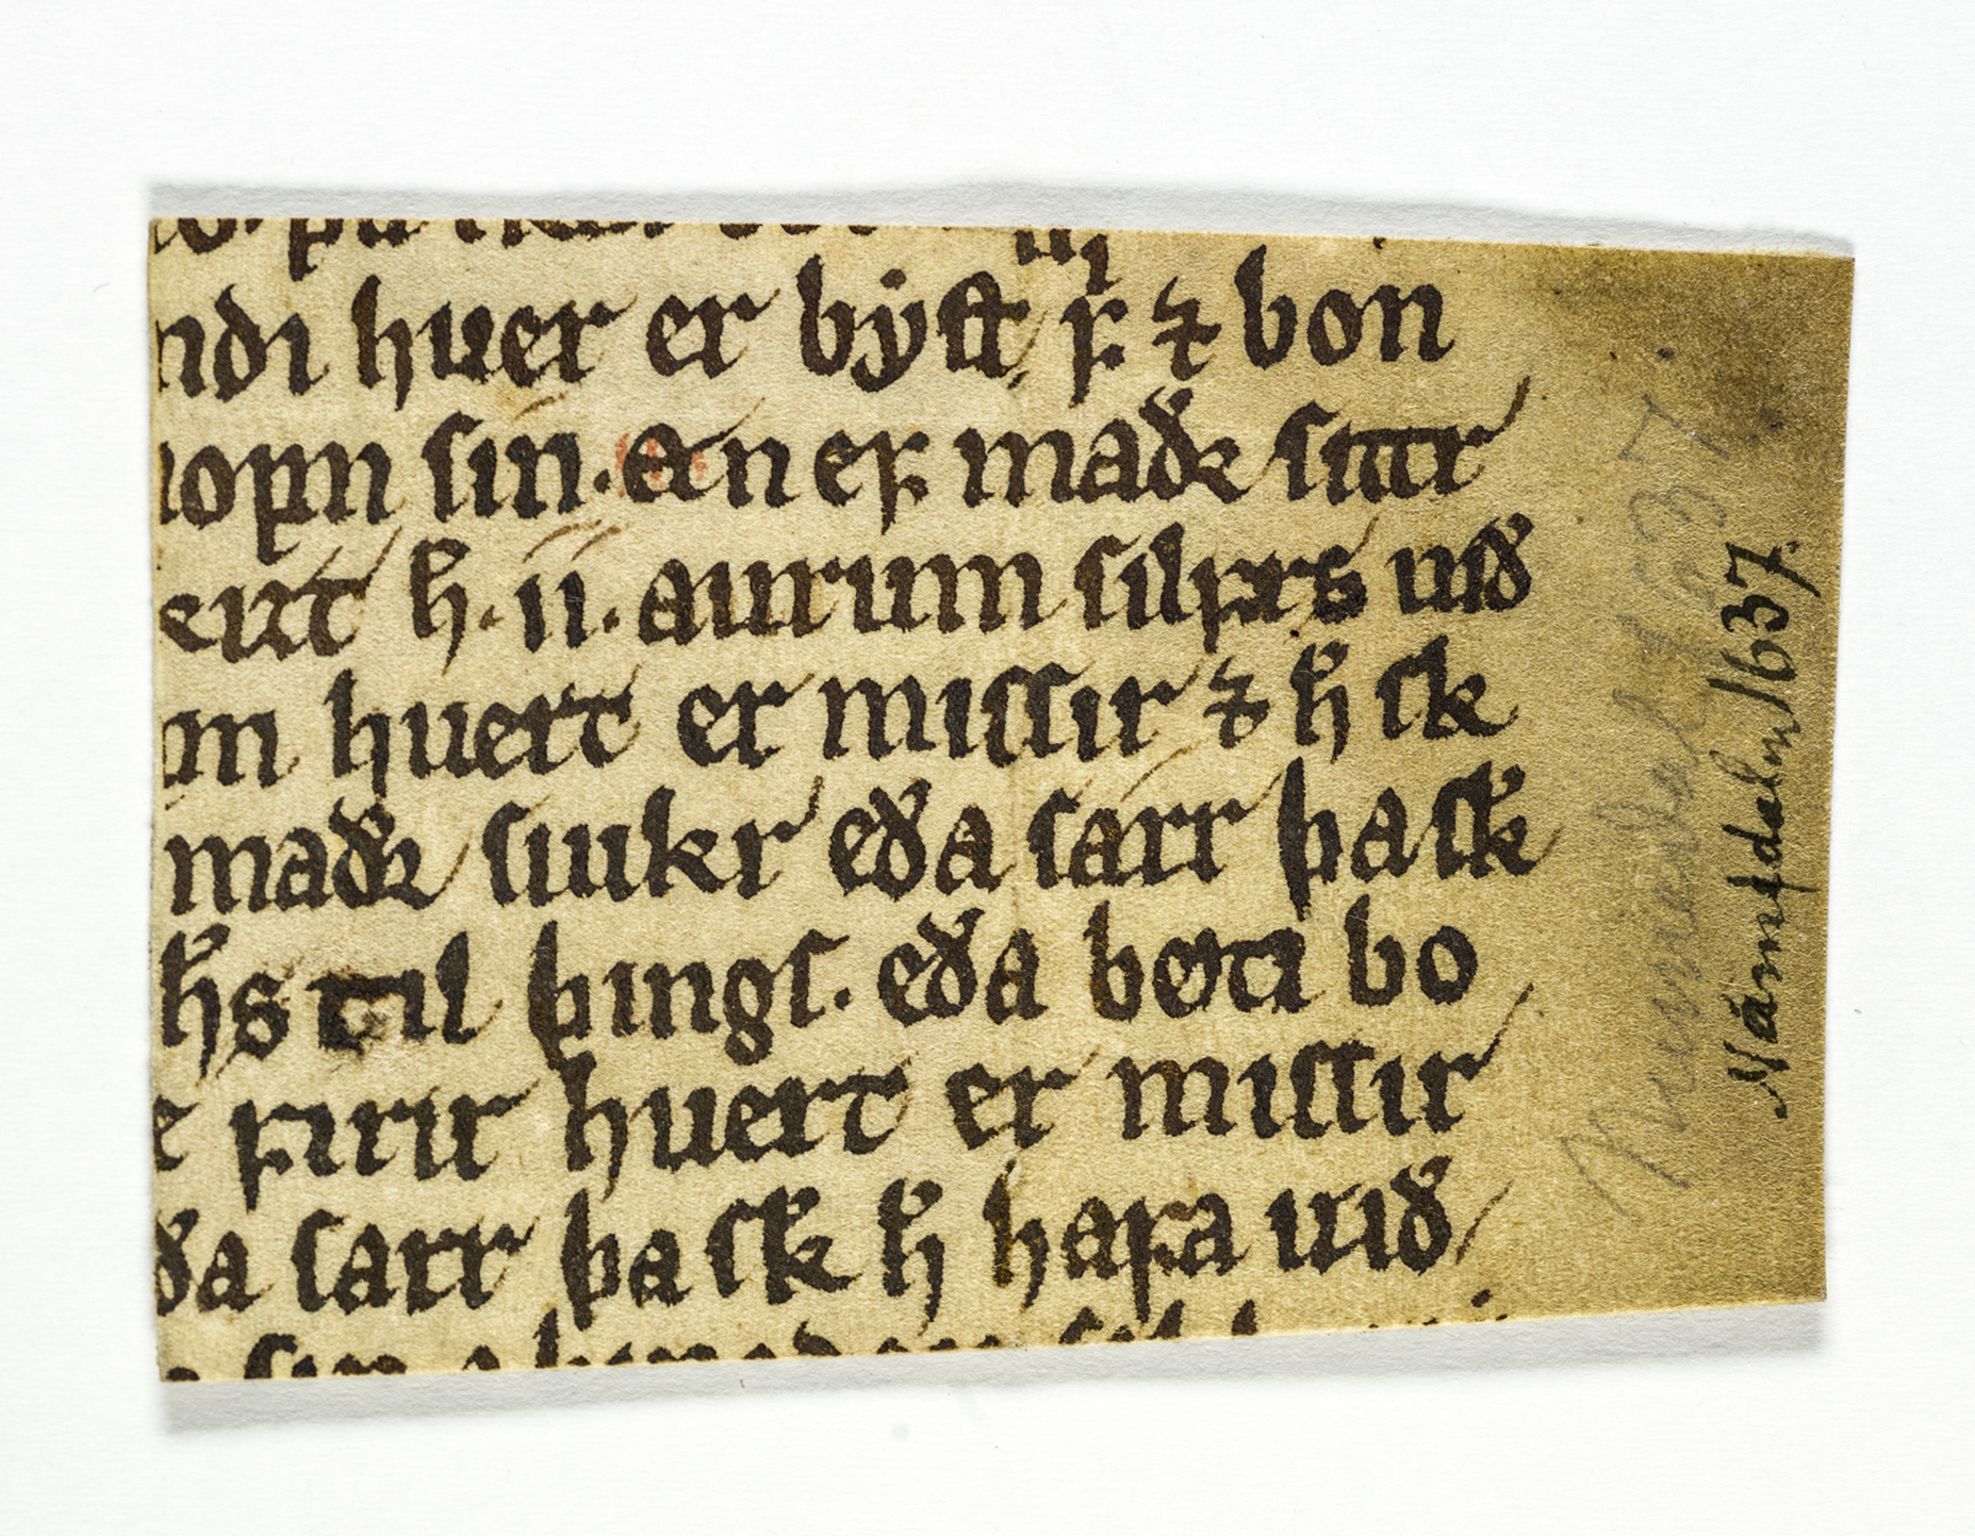 ndi huer er bẏſtꞇ ꝼ. ⁊ bon
uopn ſin. en eꝼ maðꝛ ſitr
eitt ħ. íí. aurum ſilꝼrs uið
an huert er miſſir ⁊ ħ ſk
maðꝛ ſiukr eða ſarr þa ſk
ħs til þingſ. eða bøta bo
e ꝼirir huert er miſſir
ða ſarr þa ſk ħ haꝼa uið
Námſdalen 1637.